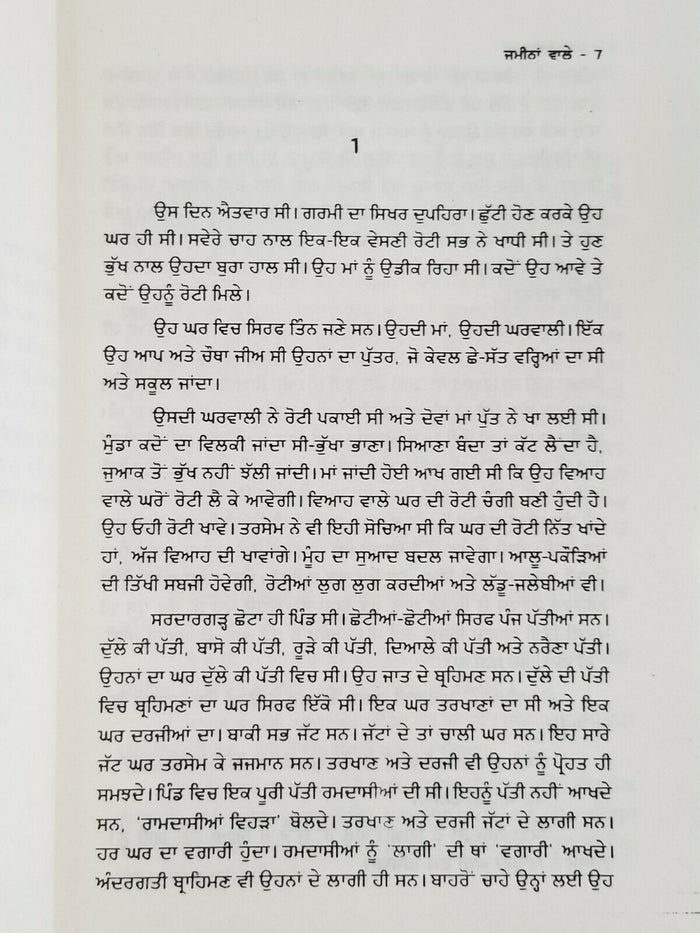 ਜਮੀਨਾਂ ਵਾਲੇ - 7
1
ਉਸ ਦਿਨ ਐਤਵਾਰ ਸੀ। ਗਰਮੀ ਦਾ ਸਿਖਰ ਦੁਪਹਿਰਾ। ਛੁੱਟੀ ਹੋਣ ਕਰਕੇ ਉਹ
ਘਰ ਹੀ ਸੀ। ਸਵੇਰੇ ਚਾਹ ਨਾਲ ਇਕ-ਇਕ ਵੇਸਣੀ ਰੋਟੀ ਸਭ ਨੇ ਖਾਧੀ ਸੀ। ਤੇ ਹੁਣ
ਭੁੱਖ ਨਾਲ ਉਹਦਾ ਬੁਰਾ ਹਾਲ ਸੀ। ਉਹ ਮਾਂ ਨੂੰ ਉਡੀਕ ਰਿਹਾ ਸੀ। ਕਦੋਂ ਉਹ ਆਵੇ ਤੇ
ਕਦੋਂ ਉਹਨੂੰ ਰੋਟੀ ਮਿਲੇ।
ਉਹ ਘਰ ਵਿਚ ਸਿਰਫ ਤਿੰਨ ਜਣੇ ਸਨ। ਉਹਦੀ ਮਾਂ, ਉਹਦੀ ਘਰਵਾਲੀ। ਇੱਕ
ਉਹ ਆਪ ਅਤੇ ਚੌਥਾ ਜੀਅ ਸੀ ਉਹਨਾਂ ਦਾ ਪੁੱਤਰ, ਜੋ ਕੇਵਲ ਛੇ-ਸੱਤ ਵਰ੍ਹਿਆਂ ਦਾ ਸੀ
ਅਤੇ ਸਕੂਲ ਜਾਂਦਾ।
ਉਸਦੀ ਘਰਵਾਲੀ ਨੇ ਰੋਟੀ ਪਕਾਈ ਸੀ ਅਤੇ ਦੋਵਾਂ ਮਾਂ ਪੁੱਤ ਨੇ ਖਾ ਲਈ ਸੀ।
ਮੁੰਡਾ ਕਦੋਂ ਦਾ ਵਿਲਕੀ ਜਾਂਦਾ ਸੀ-ਭੁੱਖਾ ਭਾਣਾ। ਸਿਆਣਾ ਬੰਦਾ ਤਾਂ ਕੱਟ ਲੈਂਦਾ ਹੈ,
ਜੁਆਕ ਤੋਂ ਭੁੱਖ ਨਹੀਂ ਝੱਲੀ ਜਾਂਦੀ। ਮਾਂ ਜਾਂਦੀ ਹੋਈ ਆਖ ਗਈ ਸੀ ਕਿ ਉਹ ਵਿਆਹ
ਵਾਲੇ ਘਰੋਂ ਰੋਟੀ ਲੈ ਕੇ ਆਵੇਗੀ। ਵਿਆਹ ਵਾਲੇ ਘਰ ਦੀ ਰੋਟੀ ਚੰਗੀ ਬਣੀ ਹੁੰਦੀ ਹੈ।
ਉਹ ਓਹੀ ਰੋਟੀ ਖਾਵੇ। ਤਰਸੇਮ ਨੇ ਵੀ ਇਹੀ ਸੋਚਿਆ ਸੀ ਕਿ ਘਰ ਦੀ ਰੋਟੀ ਨਿੱਤ ਖਾਂਦੇ
ਹਾਂ, ਅੱਜ ਵਿਆਹ ਦੀ ਖਾਵਾਂਗੇ। ਮੂੰਹ ਦਾ ਸੁਆਦ ਬਦਲ ਜਾਵੇਗਾ। ਆਲੂ-ਪਕੌੜਿਆਂ
ਦੀ ਤਿੱਖੀ ਸਬਜੀ ਹੋਵੇਗੀ, ਰੋਟੀਆਂ ਲੁਗ ਲੁਗ ਕਰਦੀਆਂ ਅਤੇ ਲੱਡੂ-ਜਲੇਬੀਆਂ ਵੀ।
ਸਰਦਾਰਗੜ੍ਹ ਛੋਟਾ ਹੀ ਪਿੰਡ ਸੀ। ਛੋਟੀਆਂ-ਛੋਟੀਆਂ ਸਿਰਫ ਪੰਜ ਪੱਤੀਆਂ ਸਨ।
ਦੁੱਲੇ ਕੀ ਪੱਤੀ, ਬਾਸੋ ਕੀ ਪੱਤੀ, ਰੂੜੇ ਕੀ ਪੱਤੀ, ਦਿਆਲੇ ਕੀ ਪੱਤੀ ਅਤੇ ਨਰੈਣਾ ਪੱਤੀ।
ਉਹਨਾਂ ਦਾ ਘਰ ਦੁੱਲੇ ਕੀ ਪੱਤੀ ਵਿਚ ਸੀ। ਉਹ ਜਾਤ ਦੇ ਬ੍ਰਹਿਮਣ ਸਨ। ਦੁੱਲੇ ਦੀ ਪੱਤੀ
ਵਿਚ ਬ੍ਰਹਿਮਣਾਂ ਦਾ ਘਰ ਸਿਰਫ ਇੱਕੋ ਸੀ। ਇਕ ਘਰ ਤਰਖਾਣਾਂ ਦਾ ਸੀ ਅਤੇ ਇਕ
ਘਰ ਦਰਜੀਆਂ ਦਾ। ਬਾਕੀ ਸਭ ਜੱਟ ਸਨ। ਜੱਟਾਂ ਦੇ ਤਾਂ ਚਾਲੀ ਘਰ ਸਨ। ਇਹ ਸਾਰੇ
ਜੱਟ ਘਰ ਤਰਸੇਮ ਕੇ ਜਜਮਾਨ ਸਨ। ਤਰਖਾਣ ਅਤੇ ਦਰਜੀ ਵੀ ਉਹਨਾਂ ਨੂੰ ਪ੍ਰੋਹਤ ਹੀ
ਸਮਝਦੇ। ਪਿੰਡ ਵਿਚ ਇਕ ਪੂਰੀ ਪੱਤੀ ਰਮਦਾਸੀਆਂ ਦੀ ਸੀ। ਇਹਨੂੰ ਪੱਤੀ ਨਹੀਂ ਆਖਦੇ
ਸਨ, 'ਰਾਮਦਾਸੀਆਂ ਵਿਹੜਾ' ਬੋਲਦੇ। ਤਰਖਾਣ ਅਤੇ ਦਰਜੀ ਜੱਟਾਂ ਦੇ ਲਾਗੀ ਸਨ।
ਹਰ ਘਰ ਦਾ ਵਗਾਰੀ ਹੁੰਦਾ। ਰਮਦਾਸੀਆਂ ਨੂੰ 'ਲਾਗੀ' ਦੀ ਥਾਂ 'ਵਗਾਰੀ' ਆਖਦੇ।
ਅੰਦਰਗਤੀ ਬ੍ਰਾਹਿਮਣ ਵੀ ਉਹਨਾਂ ਦੇ ਲਾਗੀ ਹੀ ਸਨ। ਬਾਹਰੋਂ ਚਾਹੇ ਉਨ੍ਹਾਂ ਲਈ ਉਹ